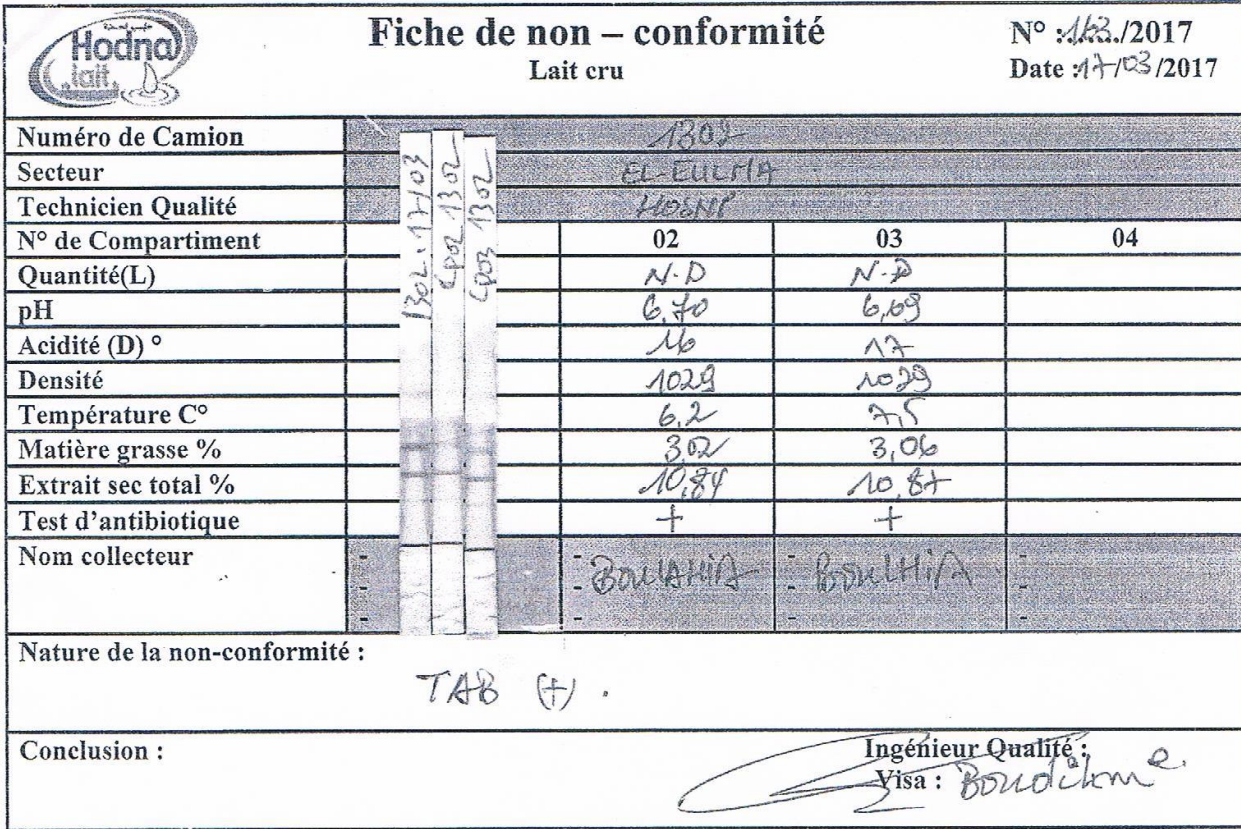 Hodna
lait
Fiche de non – conformité
Lait cru
N° :163./2017
Date :17/03/2017
Numéro de Camion 1302
Secteur EL-EULMA
Technicien Qualité HOSNI
1302. 17/03
Cp02 1302
Cp03 1302
N° de Compartiment 02 03 04
Quantité(L) N.D N.D
pH 6,70 6,69
Acidité (D) ° 16 17
Densité 1029 1029
Température C° 6,2 7,5
Matière grasse % 3,02 3,06
Extrait sec total % 10,84 10,87
Test d'antibiotique + +
Nom collecteur - - BOULAHIA - BOULHIA -
- - - -
- - - -
Nature de la non-conformité :
TAB (+) .
Conclusion :
Ingénieur Qualité :
Visa :